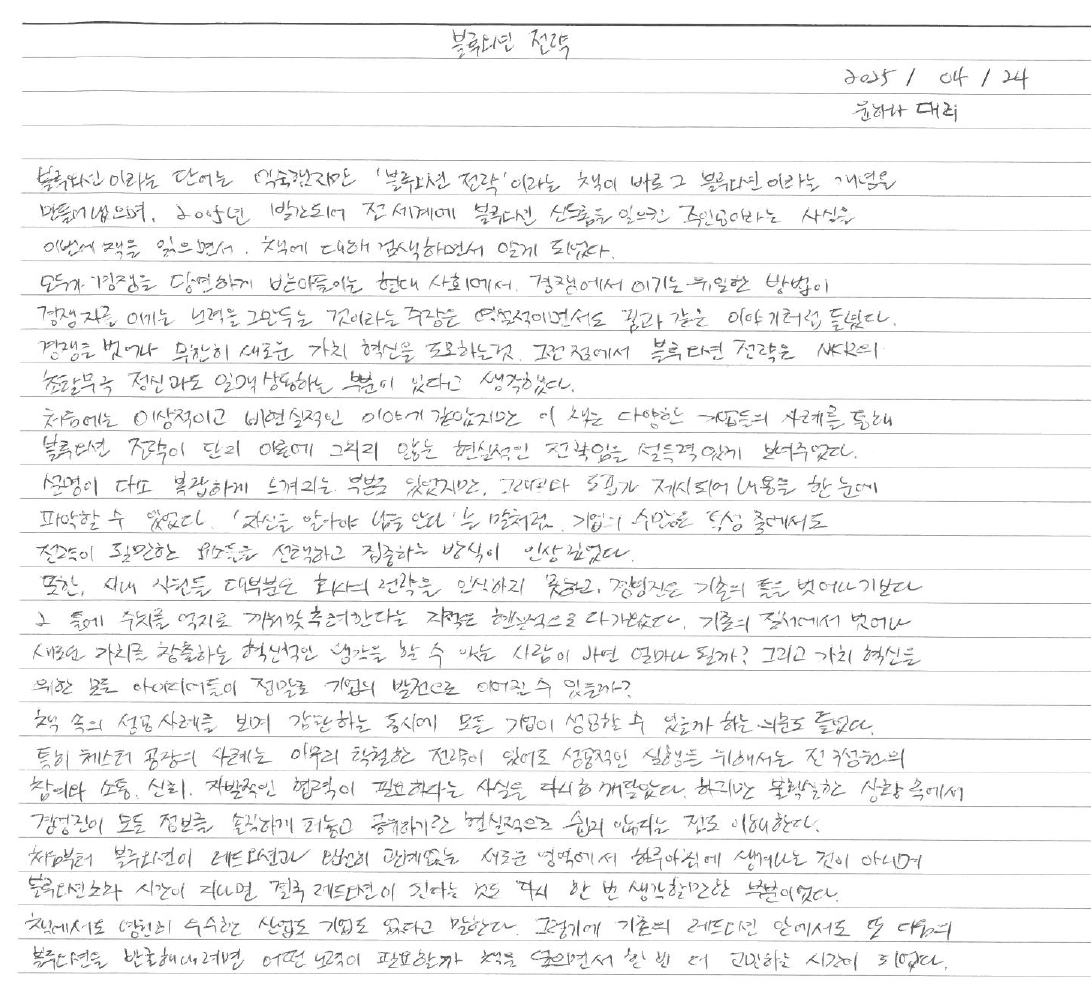 블루오션 전략
2025 / 04 / 24
윤하나 대리
블루오션이라는 단어는 익숙했지만 '블루오션 전략'이라는 책이 바로 그 블루오션이라는 개념을
만들어냈으며, 2005년 발간되어 전 세계에 블루오션 신드롬을 일으킨 주인공이라는 사실을
이번에 책을 읽으면서, 책에 대해 검색하면서 알게 되었다.
모두가 경쟁을 당연하게 받아들이는 현대 사회에서, 경쟁에서 이기는 유일한 방법이
경쟁자를 이기는 노력을 그만두는 것이라는 주장은 역설적이면서도 꿈과 같은 이야기처럼 들렸다.
경쟁을 벗어나 무한히 새로운 가치 혁신을 도모하는것. 그런 점에서 블루오션 전략은 NKR의
정신과도 일맥상통하는 부분이 있다고 생각했다.
처음에는 이상적이고 비현실적인 이야기 같았지만 이 책은 다양한 기업들의 사례를 통해
블루오션 전략이 단지 이론에 그치지 않는 현실적인 전략임을 설득력있게 보여주었다.
설명이 다소 복잡하게 느껴지는 부분도 있었지만, 그때마다 도표가 제시되어 내용을 한 눈에
파악할 수 있었다. '자신을 알아야 남을 안다'는 말처럼, 기업의 수많은 특성 중에서도
전략이 필요한 요소들을 선택하고 집중하는 방식이 인상 깊었다.
또한, 사내 직원들 대부분은 회사의 전략을 인식하지 못하고, 경영진은 기존의 틀을 벗어나기보다
그 틀에 수치를 억지로 끼워맞추려한다는 지적은 현실적으로 다가왔다. 기존의 질서에서 벗어나
새로운 가치를 창출하는 혁신적인 생각을 할 수 있는 사람이 과연 얼마나 될까? 그리고 가치 혁신을
위한 모든 아이디어들이 정말로 기업의 발전으로 이어질 수 있을까?
책 속의 성공사례를 보며 감탄하는 동시에 모든 기업이 성공할 수 있을까 하는 의문도 들었다.
특히 체스터 공장의 사례는 아무리 탁월한 전략이 있어도 성공적인 실행을 위해서는 전 구성원의
참여와 소통, 신뢰, 자발적인 협력이 필요하다는 사실을 다시금 깨달았다. 하지만 불확실한 상황 속에서
경영진이 모든 정보를 솔직하게 터놓고 공유하기란 현실적으로 쉽지 않다는 점도 이해한다.
처음부터 블루오션이 레드오션과 완전히 관계없는 새로운 영역에서 하루아침에 생겨나는 것이 아니며
블루오션조차 시간이 지나면 결국 레드오션이 된다는 것도 다시 한 번 생각할만한 부분이었다.
책에서도 영원히 우수한 산업도 기업도 없다고 말한다. 그렇기에 기존의 레드오션 안에서도 또 다음의
블루오션을 발굴해내려면 어떤 노력이 필요할까 책을 읽으면서 한 번 더 고민하는 시간이 되었다.